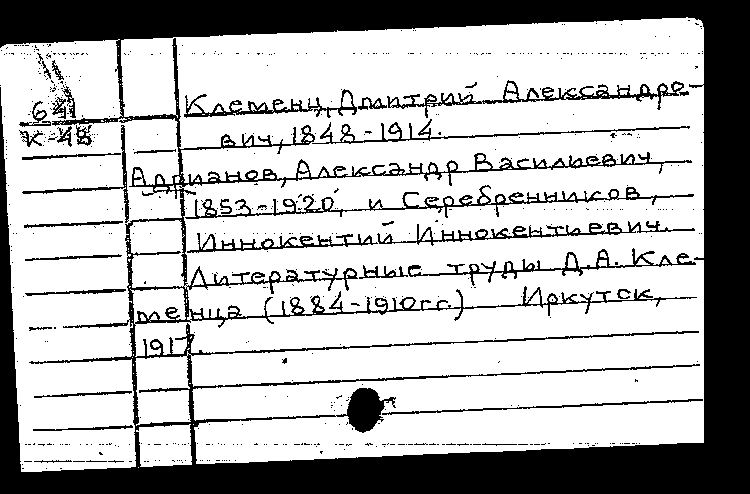 Клеменц, Дмитрий Александро-
641
вич, 1848-1914.
К-48
Адрианов, Александр Васильевич,
1853-1920, и Серебренников,
Иннокентий Иннокентьевич.
Литературные труды Д.А. Кле-
менца (1884-1910гг.) Иркутск,
1917.